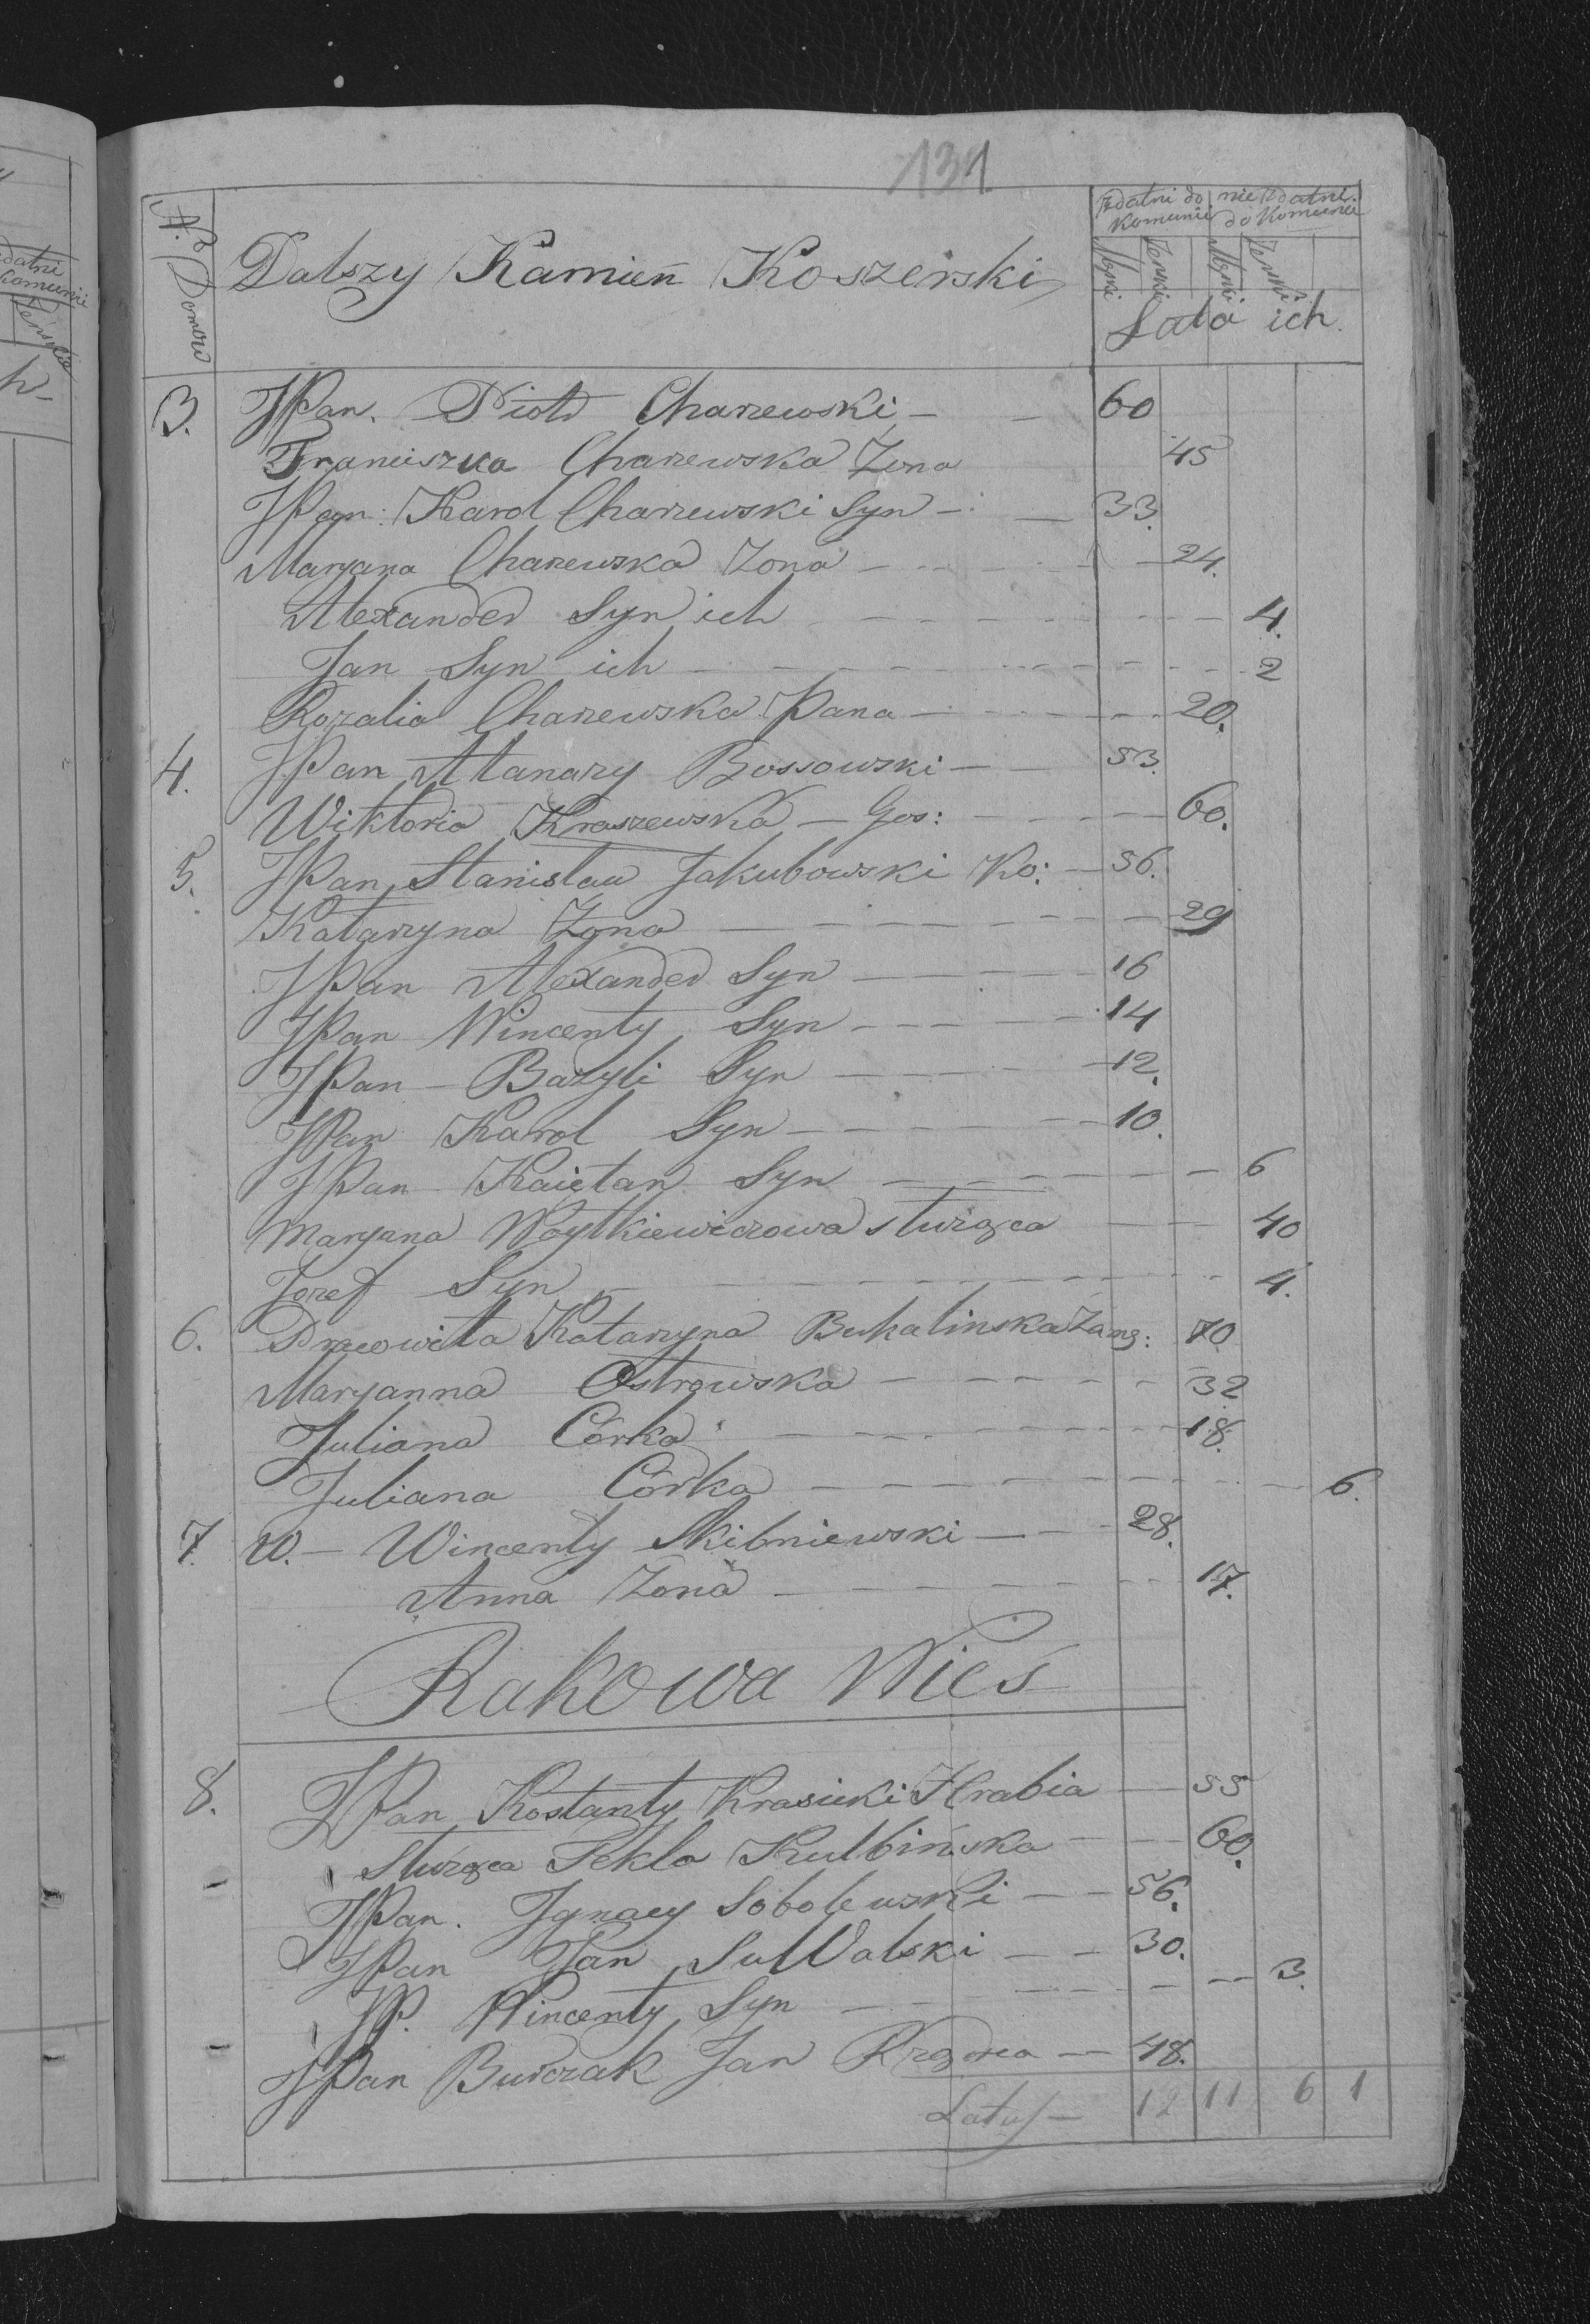 131
N. Domow
Dalszy Kamień Koszerski
Zdatni do Komunii
nie Zdatni do Komunii
Męski Żeński Męski Żeński
Lata ich.
3. JPan. Piotr Charzewski — — 60
Franciszka Charzewska Zona 45
JPan: Karol Charzewski Syn — 33.
Maryana Charzewska Zona — 24.
Alexander Syn ich — 4.
Jan Syn ich — 2
Rozalia Charzewska Pana — 20.
4. JPan Atanazy Bossowski — 53.
Wiktoria Kraszewska — Gos: — 60.
5. JPan Stanisław Jakubowski Ko: — 56.
Katarzyna Zona — 29
JPan Alexander Syn — 16
JPan Wincenty Syn — 14
JPan — Bazyli Syn — 12.
JPan Karol Syn — 10.
JPan Kaietan Syn — 6
Maryana Woytkiewiczowa służąca — 40
Jozef Syn — 4.
6. Pracowita Katarzyna Bukalinska Zang: 70
Maryanna Ostrowska — 32
Juliana Córka — 18.
Juliana Córka — 6.
7. W. — Wincenty Skibniewski — 28.
Anna Zona — 17.
Rakowa Wieś
8. JPan Kostanty Krasicki Hrabia — 55
Służąca Tekla Kulbińska — 60.
JPan. Ignacy Sobolewski — 56.
JPan Jan Suwalski — 30.
JP. Wincenty Syn — 3.
JPan Burczak Jan Rządca — 48.
Latus — 12 11 6 1